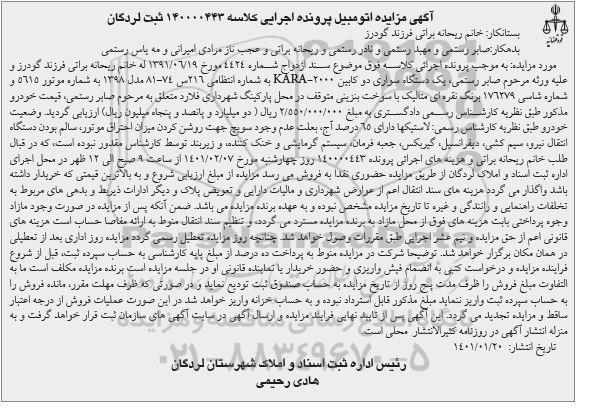 آگهی مزایده اتومبیل پرونده اجرایی کلاسه ۱۴۰۰۰۰۴۴۳ ثبت لردگان
بستانکار: خانم ریحانه براتی فرزند گودرز
بدهکار:صابر رستمی و مهبد رستمی و نادر رستمی و ریحانه براتی و عجب ناز مرادی امیرانی و مه یاس رستمی
مورد مزایده: به موجب پرونده اجرائی کلاسه فوق موضوع سند ازدواج شماره ۴۴۲۴ مورخ ۱۳۹۱/۰۶/۱۹ له خانم ریحانه براتی فرزند گودرز و
علیه ورثه مرحوم صابر رستمی، یک دستگاه سواری دو کابین KARA-۲۰۰۰ به شماره انتظامی ۲۱۶س ۷۴-۸۱ مدل ۱۳۹۸ به شماره موتور ۵۶۱۵ و
شماره شاسی ۱۷۶۳۷۹ برنگ نقره ای متالیک با سوخت بنزینی متوقف در محل پارکینگ شهرداری فلارد متعلق به مرحوم صابر رستمی، قیمت خودرو
مذکور طبق نظریه کارشناس رسمی دادگستری به مبلغ ۲/۵۵۰/۰۰۰/۰۰۰ ریال ( دو میلیارد و پانصد و پنجاه میلیون ریال) ارزیابی گردید. وضعیت
خودرو طبق نظریه کارشناس رسمی: لاستیکها دارای ۶۵ درصد آج، بعلت عدم وجود سوییچ جهت روشن کردن میزان احتراق موتور، سالم بودن دستگاه
انتقال نیرو، سیم کشی، دیفرانسیل، گیربکس، جعبه فرمان، سیستم گرمایشی و خنک کننده، و زیربند توسط کارشناس مقدور نبوده است، که در قبال
طلب خانم ریحانه براتی و هزینه های اجرائی پرونده ۱۴۰۰۰۰۴۴۳ روز چهارشنبه مورخ ۱۴۰۱/۰۲/۰۷ از ساعت ۹ صبح الی ۱۲ ظهر در محل اجرای
اداره ثبت اسناد و املاک لردگان از طریق مزایده حضوری نقداً به فروش می رسد مزایده از مبلغ ارزیابی شروع و به بالاترین قیمتی که خریدار داشته
باشد واگذار می گردد هزینه های سند انتقال اعم از عوارض شهرداری و مالیات دارایی و تعویض پلاک و دیگر ادارات ذیربط و بدهی های مربوط به
تخلفات راهنمایی و رانندگی و غیره تا تاریخ مزایده مشخص نبوده و به عهده برنده مزایده می باشد. ضمن آنکه پس از مزایده در صورت وجود مازاد
وجوه پرداختی بابت هزینه های فوق از محل مازاد به برنده مزایده مسترد می گردد، و تنظیم سند انتقال منوط به ارائه مفاصا حساب است هزینه های
قانونی اعم از حق مزایده و نیم عشر اجرایی طبق مقررات وصول خواهد شد. چنانچه روز مزایده تعطیل رسمی گردد مزایده روز اداری بعد از تعطیلی
در همان مکان برگزار خواهد شد. توضیحا شرکت در مزایده منوط به پرداخت ده درصد از مبلغ پایه کارشناسی به حساب سپرده ثبت، قبل از شروع
فراینده مزایده و درخواست کتبی به انضمام فیش واریزی و حضور خریدار یا نماینده قانونی او در جلسه مزایده است برنده مزایده مکلف است ما به
التفاوت مبلغ فروش را ظرف مدت پنج روز از تاریخ مزایده به حساب صندوق ثبت تودیع نماید و در صورتی که ظرف مهلت مقرر، مانده فروش را
به حساب سپرده ثبت واریز ننماید مبلغ مذکور قابل استرداد نبوده و به حساب خزانه واریز خواهد شد در این صورت عملیات فروش از درجه اعتبار
ساقط و مزایده تجدید می گردد. این آگهی پس از تایید نهایی فرایند مزایده و ارسال آگهی در سایت آگهی های سازمان ثبت قرار خواهد گرفت و به
منزله انتشار آگهی در روزنامه کثیرالانتشار محلی است.
تاریخ انتشار: ۱۴۰۱/۰۱/۲۰
رئیس اداره ثبت اسناد و املاک شهرستان لردگان
هادی رحیمی
۰۲۱-۸۸۳۴۹۶۷۰-۵